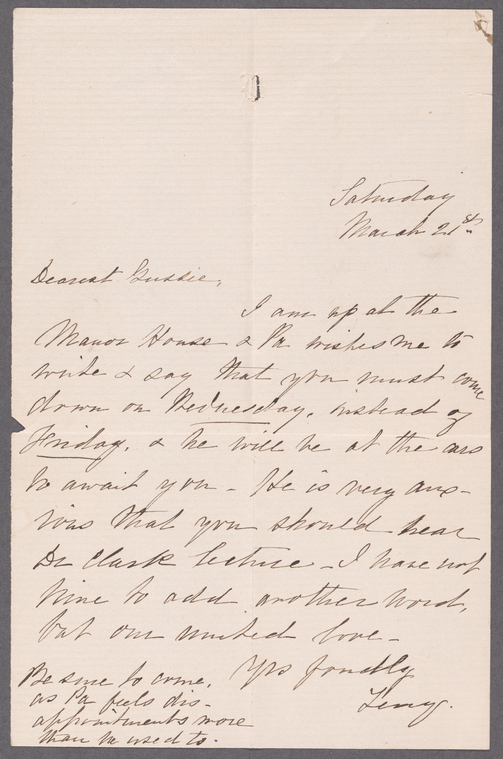 Saturday
March 21st
Dearest Gussie,
I am up at the
Manor House & Pa wishes me to
write & say that you must come
down on Wednesday, instead of
Friday, & he will be at the cars
to await you - He is very anx-
ious that you should hear
Dr Clark lecture - I have not
time to add another word,
but our united love -
Yrs fondly
Be sure to come,
as Pa feels dis-
appointments more
than he used to.